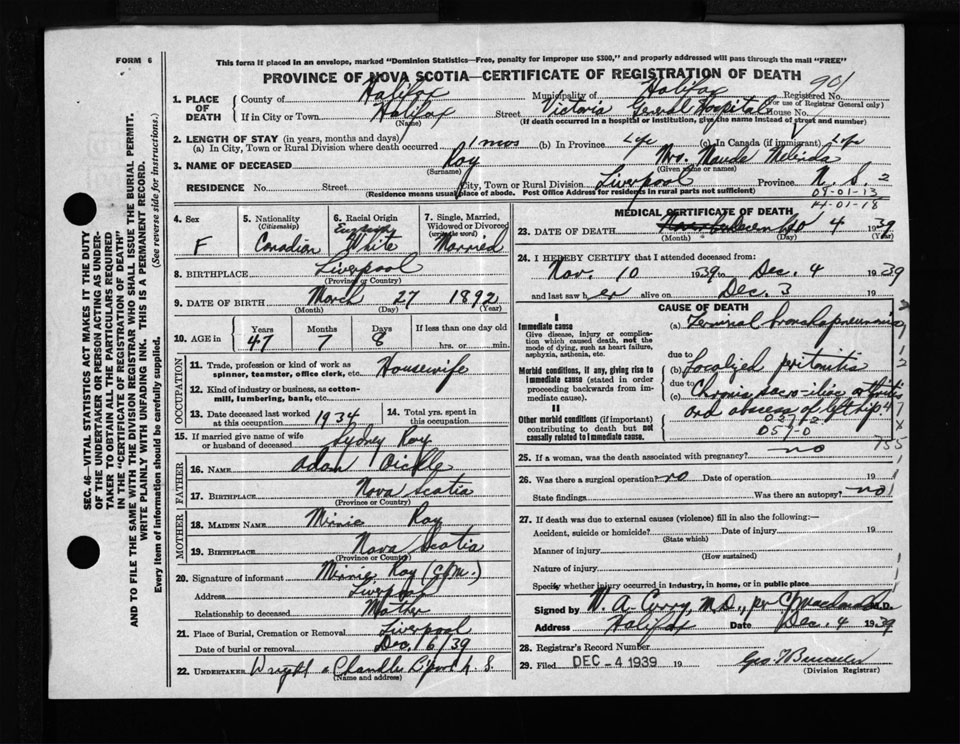 FORM 6
This form if placed in an envelope, marked "Dominion Statistics—Free, penalty for improper use $300," and properly addressed will pass through the mail "FREE"
PROVINCE OF NOVA SCOTIA—CERTIFICATE OF REGISTRATION OF DEATH
901
1. PLACE OF DEATH County of Halifax Municipality of Halifax Registered No.
(For use of Registrar General only)
If in City or Town Halifax Street Victoria General Hospital House No.
(Name) (If death occurred in a hospital or institution, give the name instead of street and number)
2. LENGTH OF STAY (in years, months and days)
(a) In City, Town or Rural Division where death occurred 1 mos (b) In Province Life (c) In Canada (if immigrant) Life
3. NAME OF DECEASED Roy Mrs. Maude
(Surname) (Given name or names)
RESIDENCE No. Street City, Town or Rural Division Liverpool Province N. S. 2
(Residence means usual place of abode. Post Office Address for residents in rural parts not sufficient) 09-01-13
14-01-18
4. Sex
F
5. Nationality
(Citizenship)
Canadian
6. Racial Origin
English
White
7. Single, Married, Widowed or Divorced
(write the word)
Married
8. BIRTHPLACE Liverpool
(Province or Country)
9. DATE OF BIRTH March 27 1892
(Month) (Day) (Year)
10. AGE in Years Months Days If less than one day old
47 7 8 hrs. or min.
OCCUPATION
11. Trade, profession or kind of work as spinner, teamster, office clerk, etc. Housewife
12. Kind of industry or business, as cotton-mill, lumbering, bank, etc.
13. Date deceased last worked at this occupation 1934
14. Total yrs. spent in this occupation
15. If married give name of wife or husband of deceased Sydney Roy
FATHER
16. NAME Adam Dickle
17. BIRTHPLACE Nova Scotia
(Province or Country)
MOTHER
18. MAIDEN NAME Minnie Roy
19. BIRTHPLACE Nova Scotia
(Province or Country)
20. Signature of informant Minnie Roy
Address Liverpool
Relationship to deceased Mother
21. Place of Burial, Cremation or Removal Liverpool
Date of burial or removal Dec. 6/39
22. UNDERTAKER Wright & Chandler N. S.
(Name and address)
MEDICAL CERTIFICATE OF DEATH
23. DATE OF DEATH December 4 1939
(Month) (Day) (Year)
24. I HEREBY CERTIFY that I attended deceased from:
Nov. 10 1939 to Dec. 4 1939
and last saw her alive on Dec. 3 19
CAUSE OF DEATH
I
Immediate cause
Give disease, injury or complication which caused death, not the mode of dying, such as heart failure, asphyxia, asthenia, etc.
(a) Terminal bronchopneumonia
due to
Morbid conditions, if any, giving rise to immediate cause (stated in order proceeding backwards from immediate cause).
(b) Localized peritonitis
due to
(c) Chronic sacro-iliac arthritis
and abscess of left hip
II
Other morbid conditions (if important) contributing to death but not causally related to immediate cause.
057-0
25. If a woman, was the death associated with pregnancy? no 755
26. Was there a surgical operation? no Date of operation 19
State findings Was there an autopsy? no
27. If death was due to external causes (violence) fill in also the following:—
Accident, suicide or homicide? Date of injury 19
(State which)
Manner of injury
(How sustained)
Nature of injury
Specify whether injury occurred in industry, in home, or in public place
Signed by W. A. Curry, M.D., per M.D.
Address Halifax Date Dec. 4 1939
28. Registrar's Record Number
29. Filed DEC - 4 1939 19
(Division Registrar)
SEC. 46—VITAL STATISTICS ACT MAKES IT THE DUTY
OF THE UNDERTAKER OR PERSON ACTING AS UNDERTAKER TO OBTAIN ALL THE PARTICULARS REQUIRED
IN THE "CERTIFICATE OF REGISTRATION OF DEATH"
AND TO FILE THE SAME WITH THE DIVISION REGISTRAR WHO SHALL ISSUE THE BURIAL PERMIT.
WRITE PLAINLY WITH UNFADING INK. THIS IS A PERMANENT RECORD.
Every item of information should be carefully supplied. (See reverse side for instructions.)